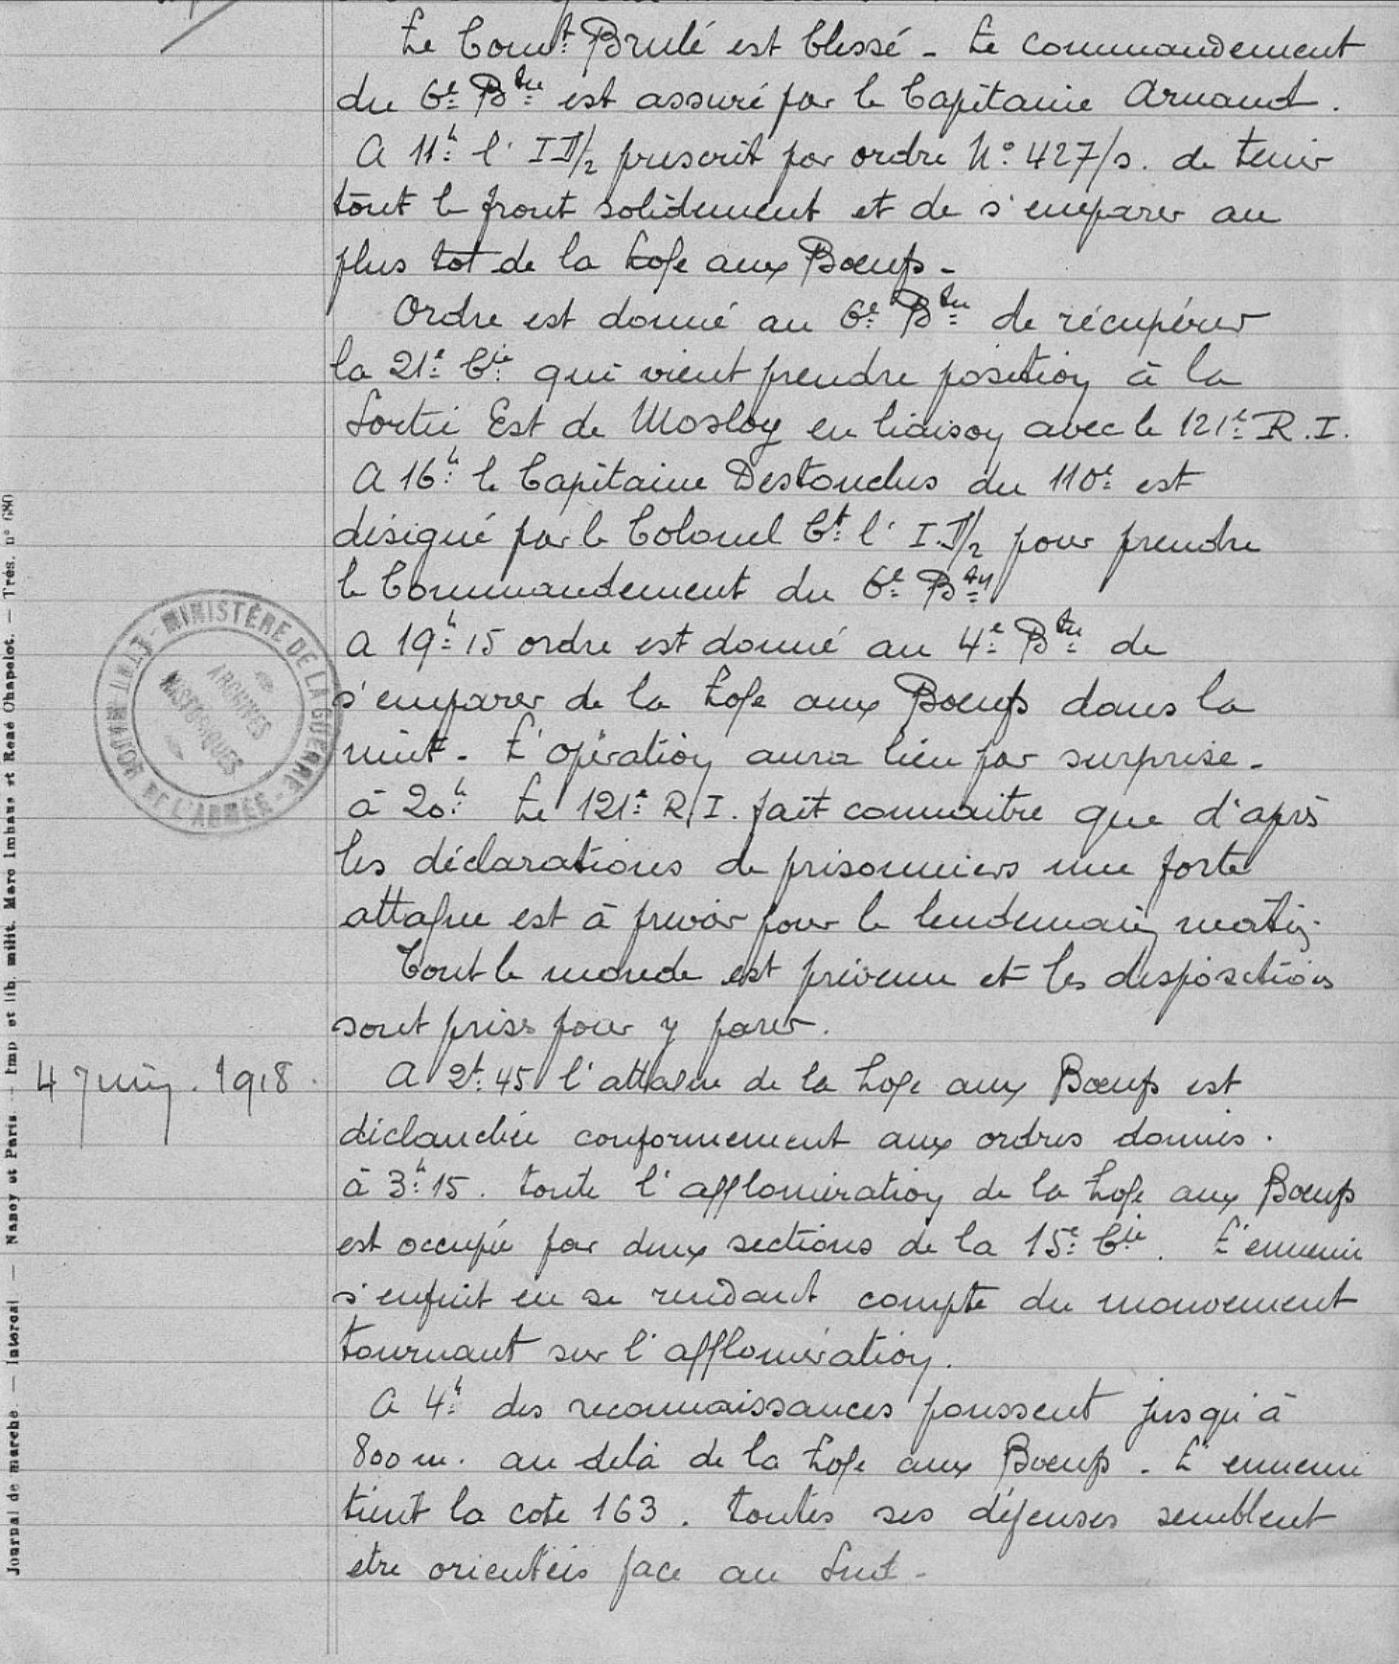 Le Comt Brulé est blessé - Le commandement
du 6e Bton est assuré par le Capitaine Arnaud.
A 11h l'ID/2 prescrit par ordre N° 427/s. de tenir
tout le front solidement et de s'emparer au
plus tot de la Loge aux Bœufs -
Ordre est donné au 6e Bton de récupérer
la 21e Cie qui vient prendre position à la
Sortie Est de Mosloy en liaison avec le 121e R.I.
A 16h le Capitaine Destouches du 110e est
désigné par le Colonel Ct l'I.D/2 pour prendre
le Commandement du 6e Bton
A 19h15 ordre est donné au 4e Bton de
s'emparer de la Loge aux Bœufs dans la
nuit - L'opération aura lieu par surprise -
à 20h Le 121e R.I. fait connaitre que d'après
les déclarations de prisonniers une forte
attaque est à prevoir pour le lendemain matin.
Tout le monde est prévenu et les dispositions
sont prises pour y parer.
4 Juin. 1918.
A 2h.45 l'attaque de la Loge aux Bœufs est
déclanchée conformement aux ordres donnés.
à 3h15. toute l'agglomération de la Loge aux Bœufs
est occupée par deux sections de la 15e Cie. L'ennemi
s'enfuit en se rendant compte du mouvement
tournant sur l'agglomération.
A 4h des reconnaissances poussent jusqu'à
800 m. au delà de la Loge aux Bœufs - L'ennemi
tient la cote 163. toutes ses défenses semblent
etre orientées face au Sud -
MINISTÈRE DE LA GUERRE - ÉTAT-MAJOR DE L'ARMÉE -
ARCHIVES
HISTORIQUES
Journal de marche. — Intercal — Nancy et Paris. — Imp et lib. milit. Marc Imhaus et René Chapelot. — Trés. n° 680